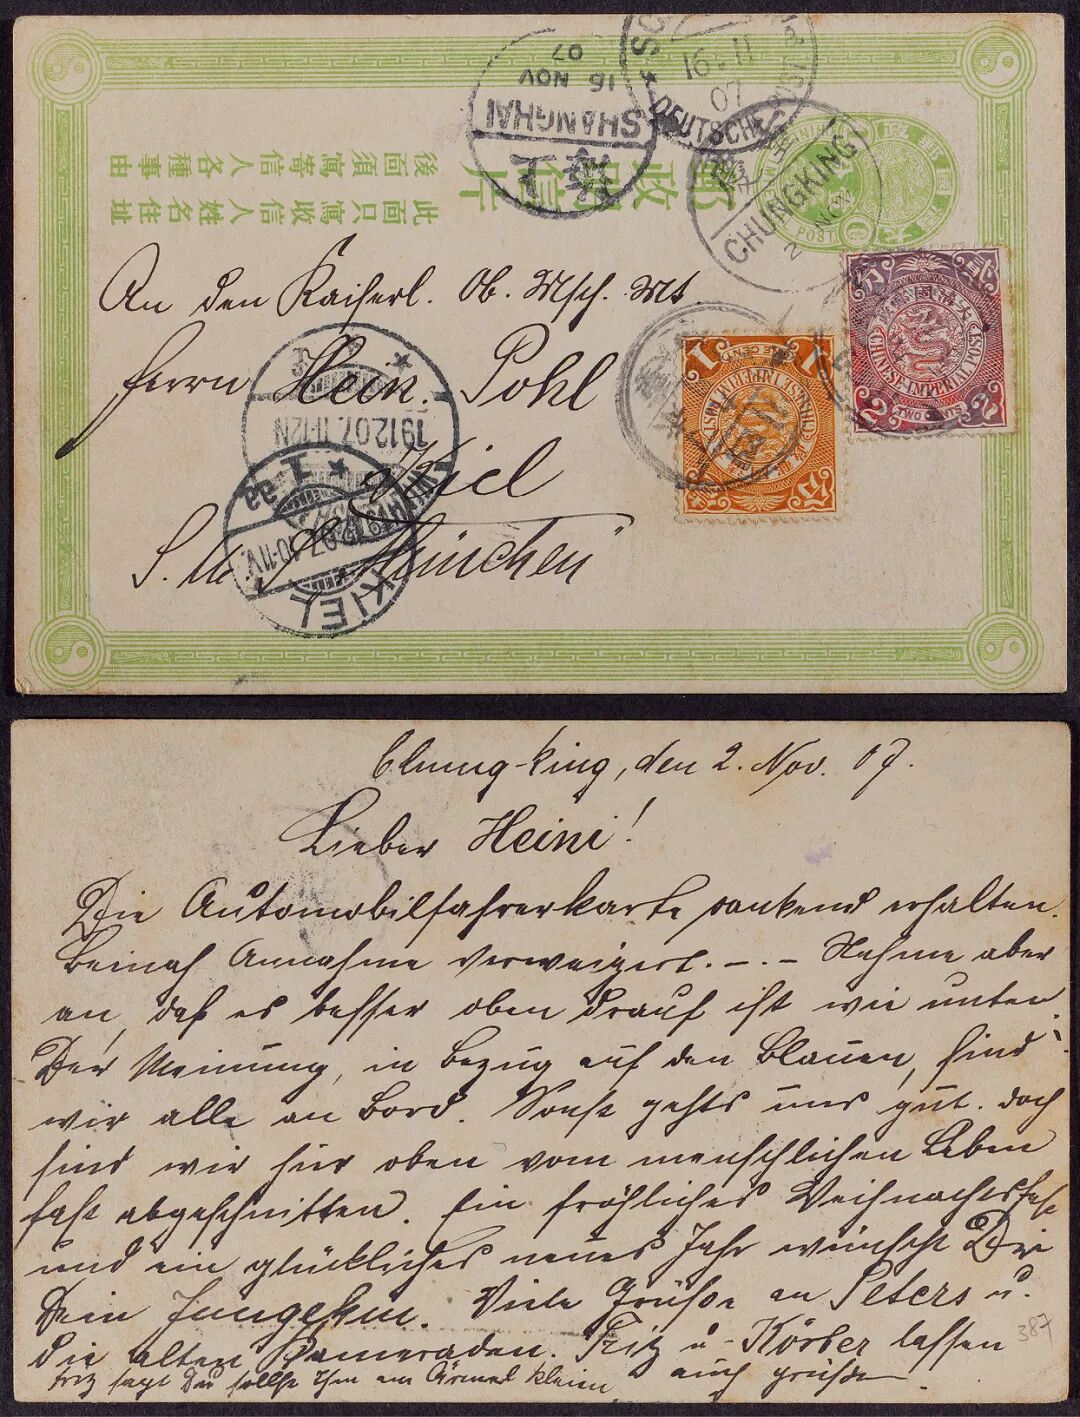 郵政明信片
此面只寫收信人姓名住址
後面須寫寄信人各種事由
上海
SHANGHAI
16 NOV
07
DEUTSCHE POST
16.11
07
CHUNGKING
2 NOV
CHINESE IMPERIAL POST
2
2
大清國郵政
CHINESE IMPERIAL POST
1
1
ONE CENT
An den Kaiserl. Ob. Msch. Mt.
Herrn Hein. Pohl
Kiel
S. M. S. München
19.12.07. 11-12N
KIEL
10-11V.
Chung-king, den 2. Nov. 07.
Lieber Heini!
Die Automobilfahrerkarte dankend erhalten.
Beinah Annahme verweigert. – . – Nehme aber
an, daß es besser oben drauf ist wie unten.
Der Meinung, in Bezug auf den blauen, sind
wir alle an Bord. Sonst gehts uns gut. doch
sind wir hier oben vom menschlichen Leben
fast abgeschnitten. Ein fröhliches Weihnachtsfest
und ein glückliches neues Jahr wünscht Dir
Dein. Viele Grüße an Peters u.
die alten Kameraden. Fritz u. Körber lassen
auch grüßen.
Fritz sagt Du sollst Ihm ein klein
387